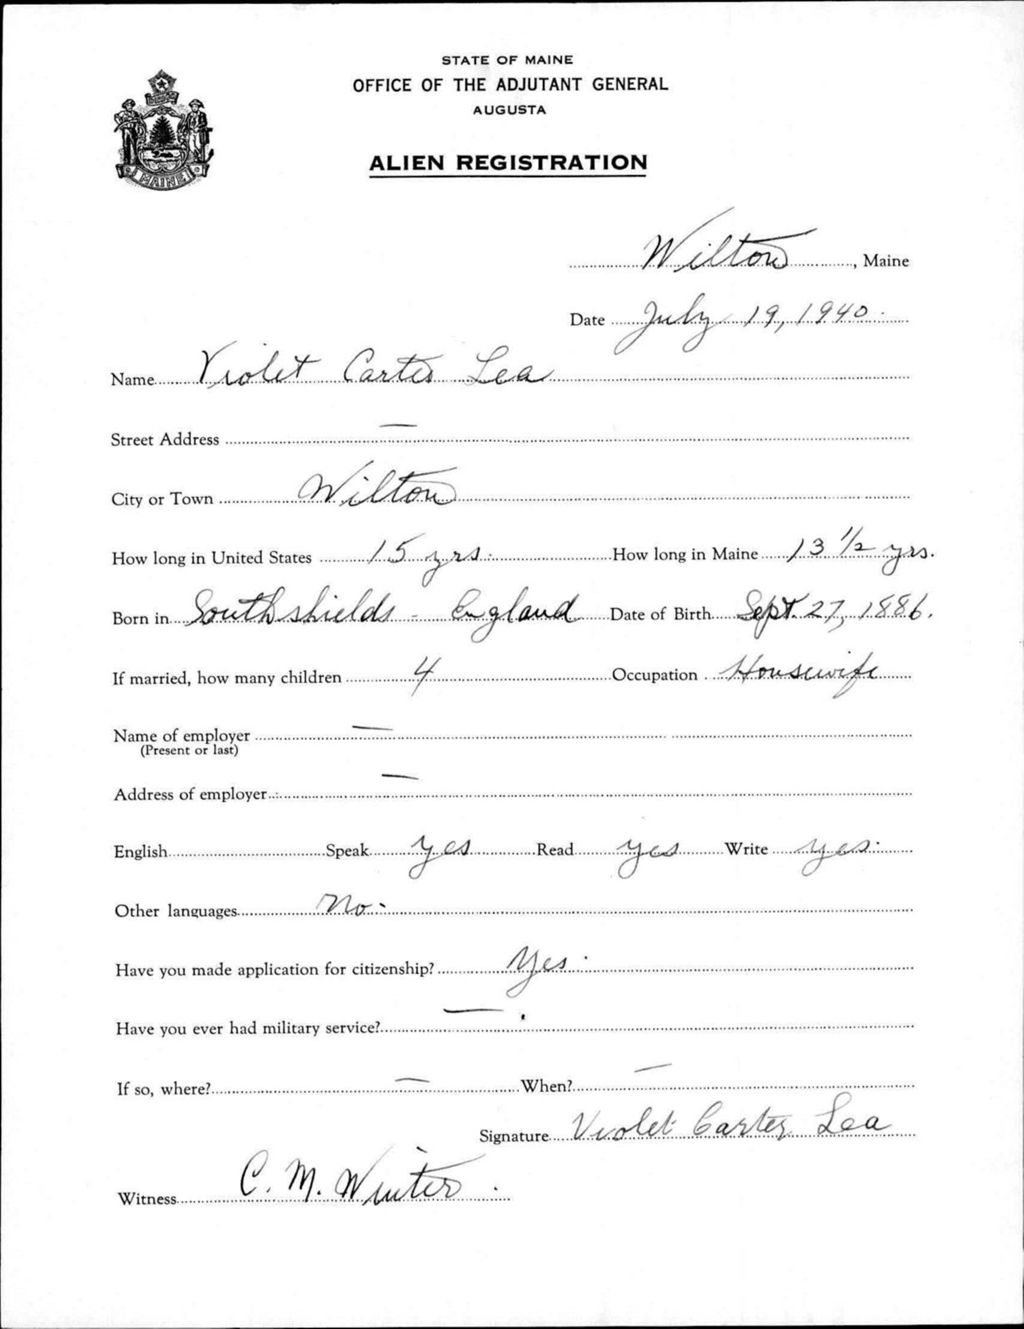 STATE OF MAINE
OFFICE OF THE ADJUTANT GENERAL
AUGUSTA
ALIEN REGISTRATION
MAINE
Wilton, Maine
Date July 19, 1940.
Name Violet Carter Lea
Street Address —
City or Town Wilton
How long in United States 15 yrs. How long in Maine 13 1/2 yrs.
Born in Southshields - England Date of Birth Sept. 27, 1886.
If married, how many children 4 Occupation Housewife
Name of employer —
(Present or last)
Address of employer —
English Speak yes Read yes Write yes.
Other languages No.
Have you made application for citizenship? Yes.
Have you ever had military service? — .
If so, where? — When? —
Signature Violet Carter Lea
Witness C. M. Winter.